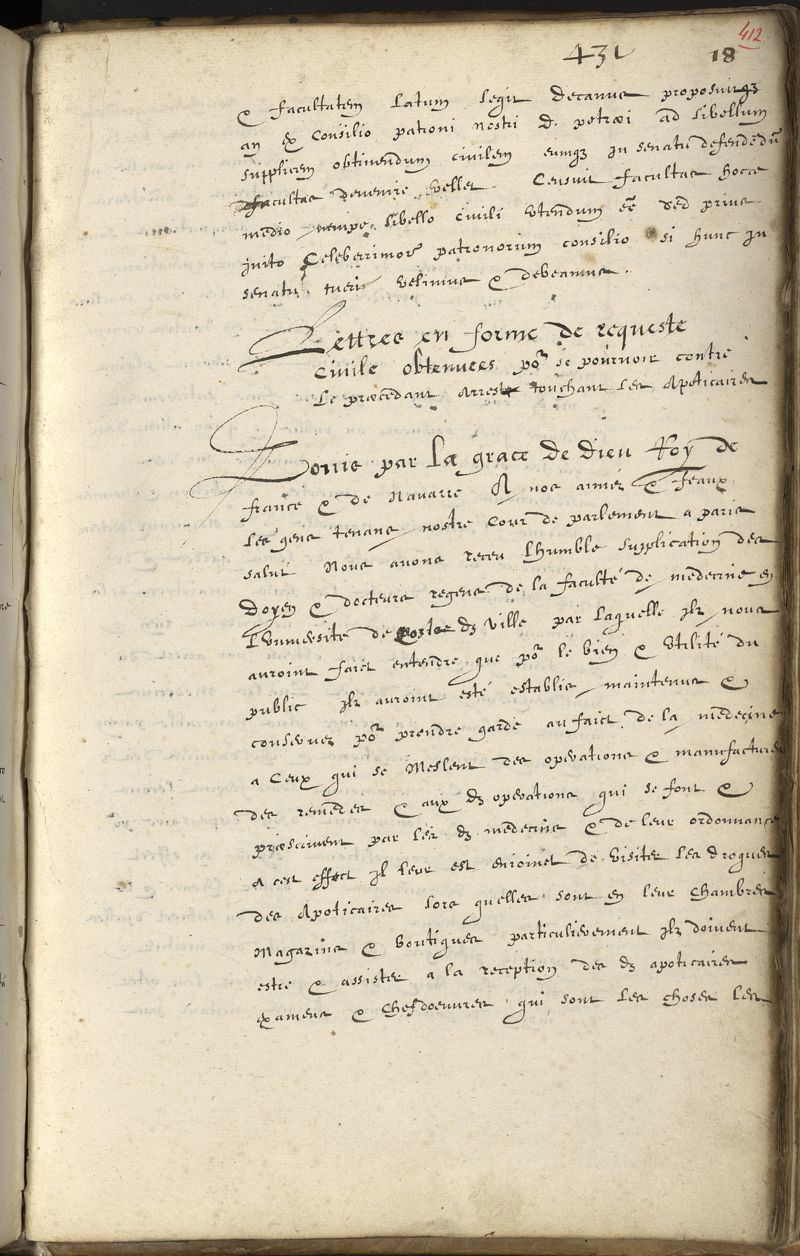 412
431 18
& facultatem Latum legit decanus proposuitqz
an ex Consilio patroni nostri d. petræi ad libellum
supplicem obtinendum civilem eumqz in senatu defendedũ
facultas devenire vellet. Censuit facultas hocce
medio nempe libello civili utendum eẽ sed prius
inito Celeberrimorũ patronorum consilio si hunc in
senatu tueri velimus & debeamus.
Lettres en forme de requeste
Civile obtenuees poʳ se pourvoir contre
Le præcedant Arrest touchant les Apoticaires
Louis par La grace de dieu Roy de
france & de Navarre A nos améz & feaux
Les gens tenans nostre Cour de parlement a paris
salut Nous avons receu Lhumble supplication des
doyen & docteurs regens de la faculté de medecine en
Luniversite de dz ville par Laquelle ilz nous
auroint faict entendre que poʳ le bien & utilité du
public ilz auroint esté establis maintenus &
conservez poʳ prendre garde au faict de la medecine
a Ceux qui se Meslent des operations & manufactures
des remedes & aux dz operations qui se font &
præscrivent par les dz medecins & de leur ordonnance
A cest effect il leur est enioinct de visiter les drogues
des Apoticaires lors quelles sont en leur chambres
Magazins & boutiques particulierement ilz doivent
estre & assister a la reception des dz apoticaires
examens & chefdoeuvres qui sont les choses les